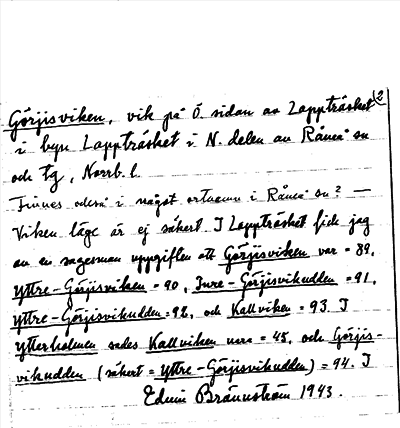 Görjisviken, vik på Ö. sidan av Lappträsket
i byn Lappträsket i N. delen av Råneå sn
och tg, Norrb. l.
Finnes också i något ortnamn i Råneå sn? —
Viken läge är ej säkert. I Lappträsket fick jag
av en sagesman uppgiften att Görjisviken var = 89,
Yttre-Görjisviken = 90, Inre-Görjisvikudden = 91,
Yttre-Görjisvikudden = 92, och Kallviken = 93. I
Ytterholmen sades Kallviken vara = 45, och Görjis-
vikudden (säkert = Yttre-Görjisvikudden) = 94. I
Edvin Brännström 1943.